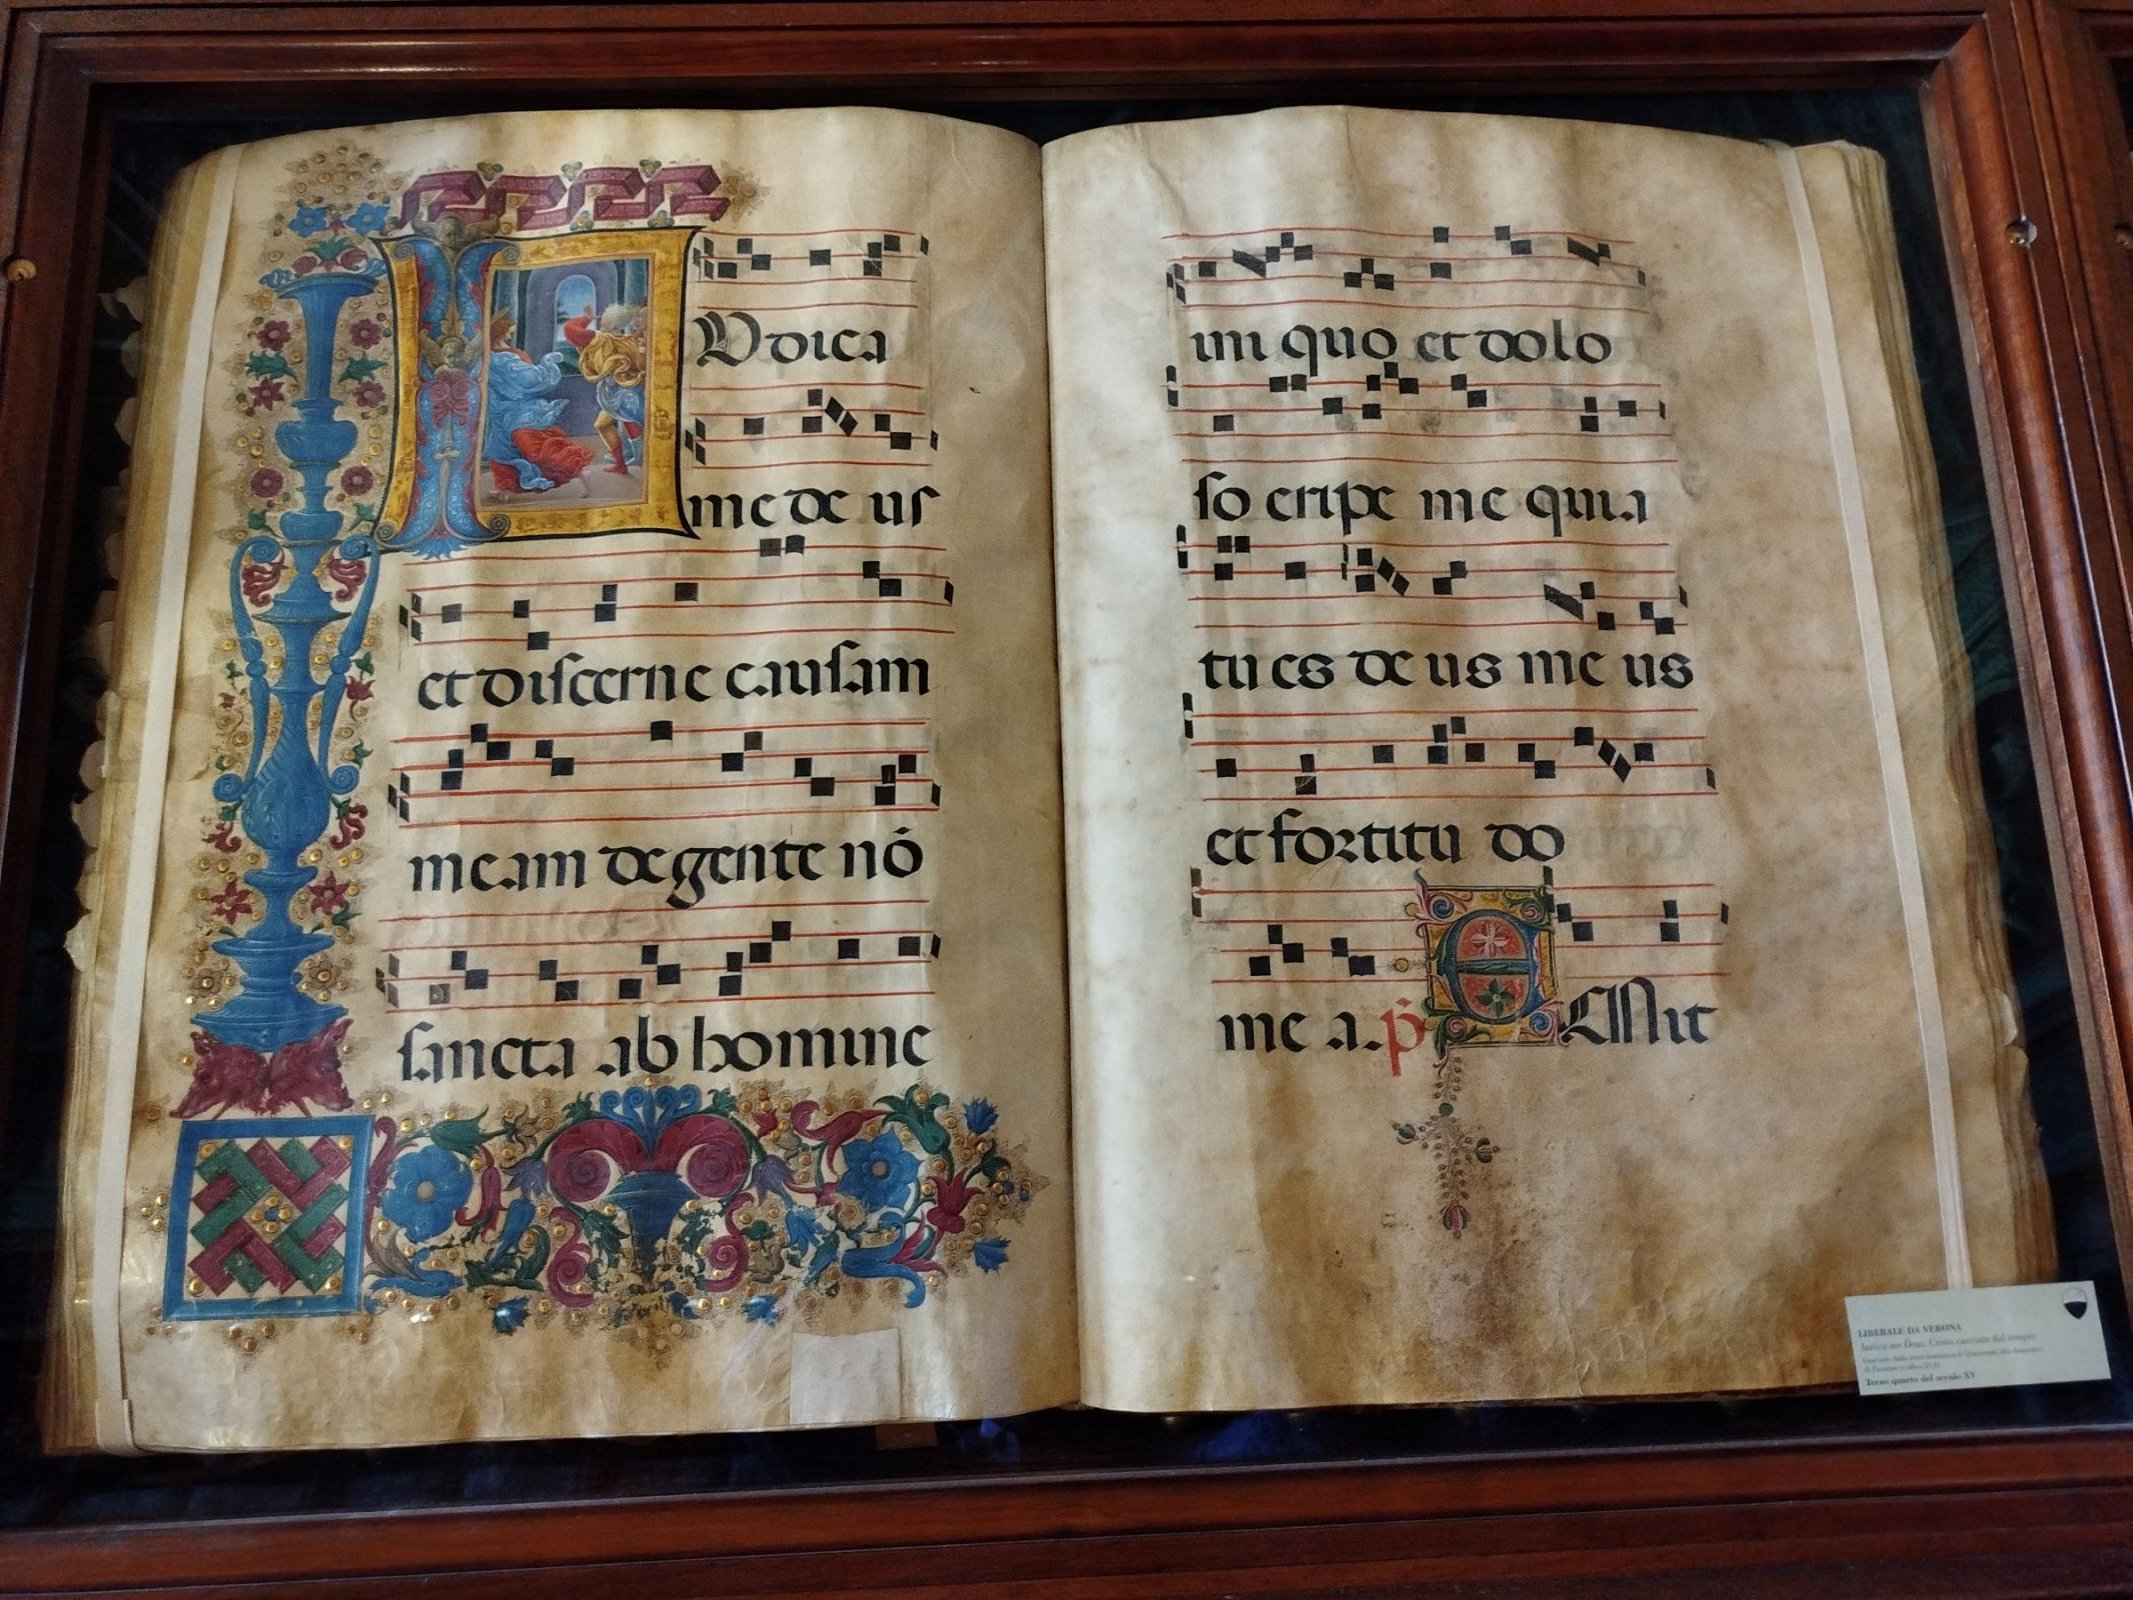 IVdica
me de us
et discerne causam
meam de gente nō
sancta ab homine
ini quo et dolo
so eripe me quia
tu es de us me us
et fortitu do
me a. p̄ EMit
LIBERALE DA VERONA
Iudica me Deus, Cristo cacciato dal tempio
Graduale dalla terza domenica di Quaresima alla domenica
di Passione
Terzo quarto del secolo XV